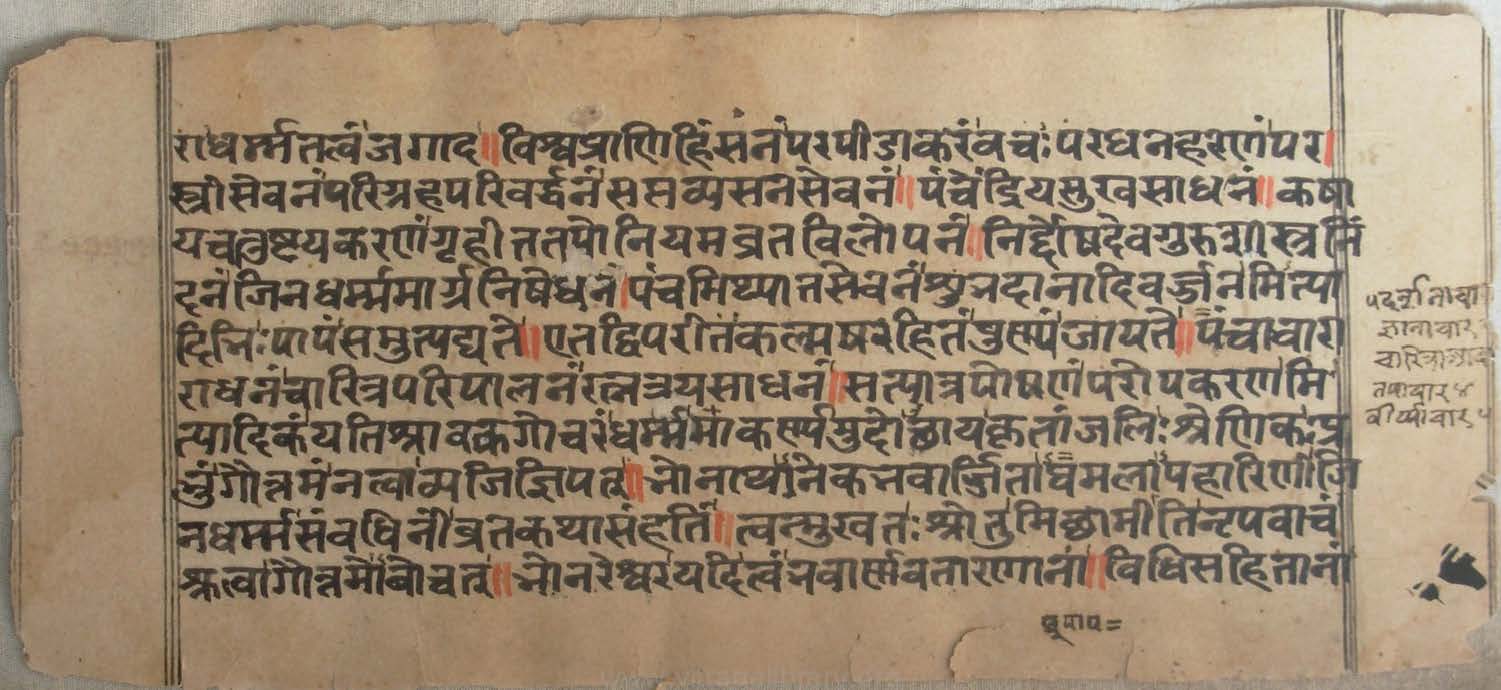 राधर्म्मतत्वं जगाद॥ विश्वप्राणिहिंसनं परपीडाकरं वचः परधनहरणं पर।
स्त्रीसेवनं परिग्रहपरिवर्द्धनं सप्तव्यसनसेवनं॥ पंचेंद्रियसुखसाधनं॥ कषा
यचतुष्टयकरणं गृहीततपोनियमव्रतविलोपनं॥ निर्द्दोषदेवगुरुशास्त्रनिं
दनं जिनधर्म्ममार्ग्गनिषेधनं। पंचमिथ्यात्तसेवनं श्रुतदानादिवर्ज्जनमित्या
दिभिः पापं समुत्पद्यते॥ एतद्विपरीतं कल्मषरहितं पुण्यं जायते॥ पंचाचारा
राधनं चारित्रपरिपालनं रत्नत्रयसाधनं॥ सत्पात्रपोषणं परोपकरणमि
त्यादिकं यतिश्रावकगोचरं धर्म्ममाकर्ण्य मुदोत्छाय कृतांजलिः श्रेणिकः प्र
भुं गौतमं नत्वा व्यजिज्ञिपत्॥ भो नाथानेकभवार्ज्जिताघमलापहारिणीं जि
नधर्म्मसंवधिनीं व्रतकथासंहतिं॥ त्वन्मुखतः श्रोतुमिच्छामीति नृपवाचं
श्रुत्वा गौतमोवोचत्॥ भो नरेश्वर यदि त्वं भवार्णवतारणानां॥ विधिसहितानां
ज्ञानाचार
तपाचार ४
वीर्य्याचार ५